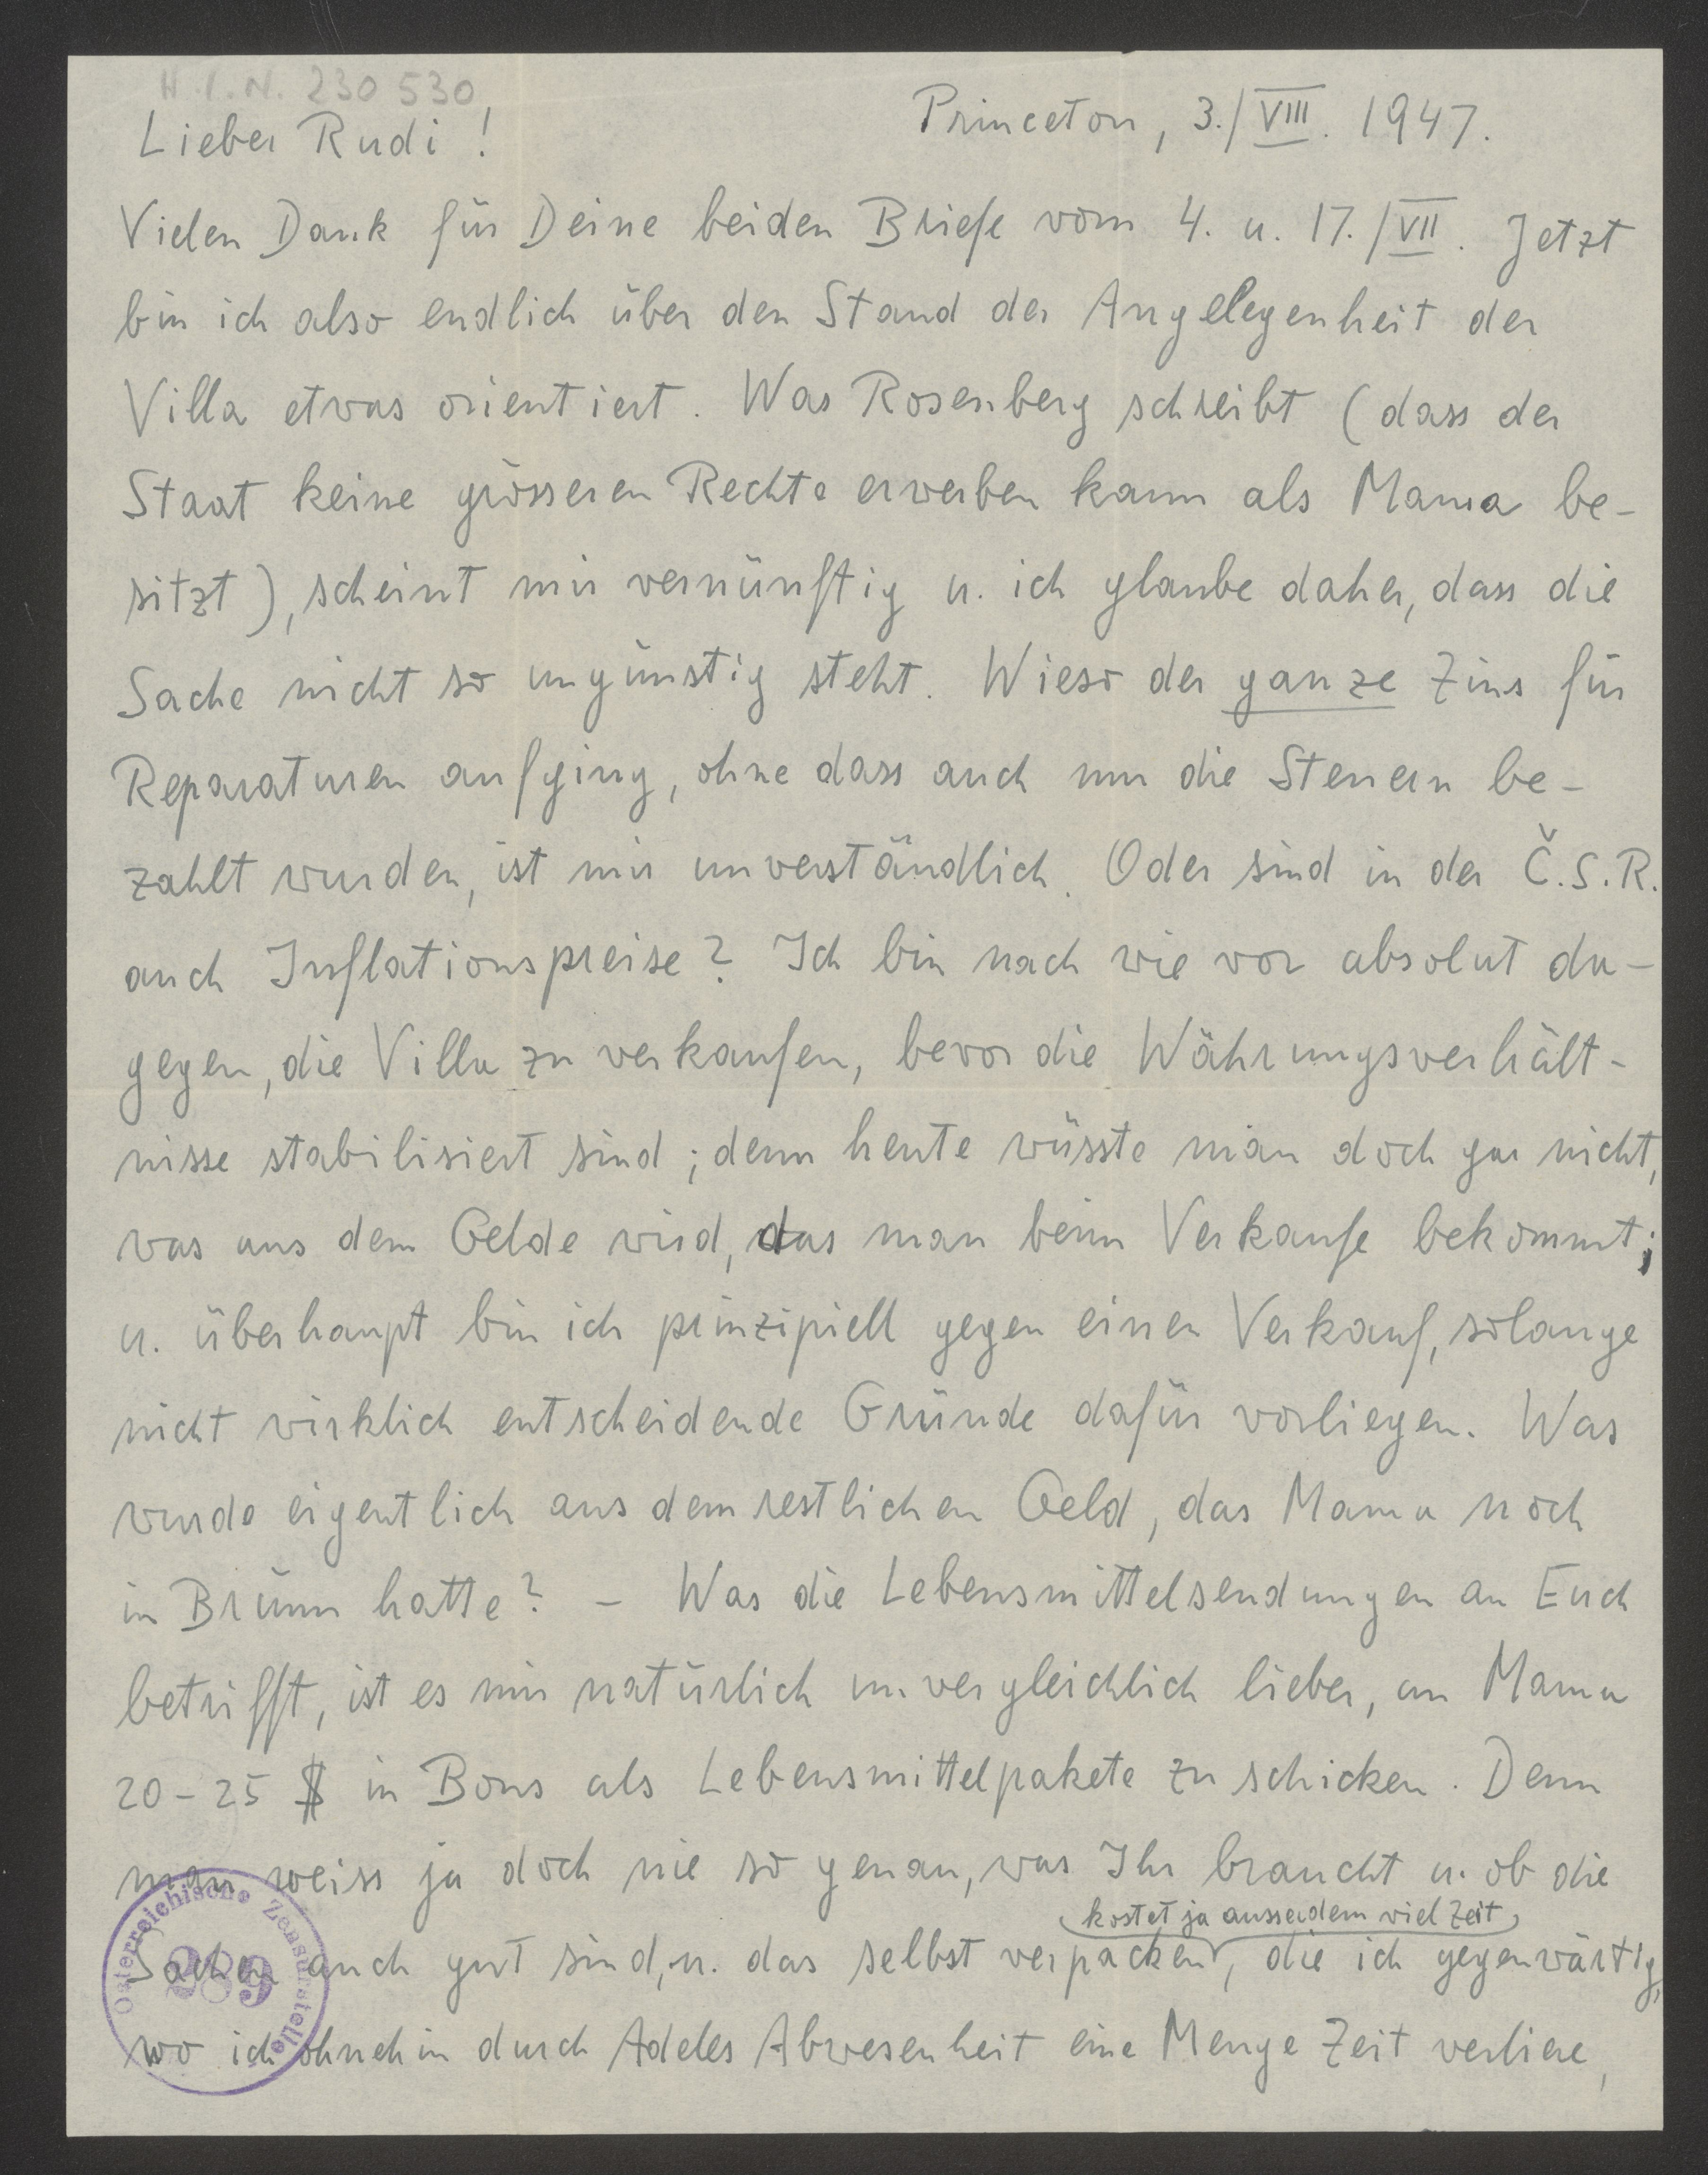 H.I.N. 230 530
Princeton, 3./VIII. 1947.
Lieber Rudi!
Vielen Dank für Deine beiden Briefe vom 4. u. 17./VII. Jetzt
bin ich also endlich über den Stand der Angelegenheit der
Villa etwas orientiert. Was Rosenberg schreibt (dass der
Staat keine grösseren Rechte erwerben kann als Mama be-
sitzt), scheint mir vernünftig u. ich glaube daher, dass die
Sache nicht so ungünstig steht. Wieso der ganze Zins für
Reparaturen aufging, ohne dass auch nur die Steuern be-
zahlt wurden, ist mir unverständlich. Oder sind in der Č.S.R.
auch Inflationspreise? Ich bin nach wie vor absolut da-
gegen, die Villa zu verkaufen, bevor die Währungsverhält-
nisse stabilisiert sind; denn heute wüsste man doch gar nicht,
was aus dem Gelde wird, das man beim Verkaufe bekommt;
u. überhaupt bin ich prinzipiell gegen einen Verkauf, solange
nicht wirklich entscheidende Gründe dafür vorliegen. Was
wurde eigentlich aus dem restlichen Geld, das Mama noch
in Brünn hatte? – Was die Lebensmittelsendungen an Euch
betrifft, ist es mir natürlich unvergleichlich lieber, an Mama
20–25 $ in Bons als Lebensmittelpakete zu schicken. Denn
man weiss ja doch nie so genau, was Ihr braucht u. ob die
kostet ja ausserdem viel Zeit
Sachen auch gut sind, u. das selbst verpacken, die ich gegenwärtig,
wo ich ohnehin durch Adeles Abwesenheit eine Menge Zeit verliere,
Österreichische Zensurstelle
289